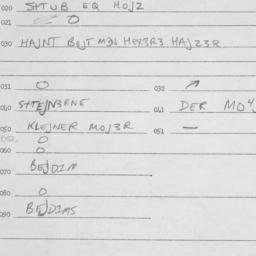 020 SHTUB EQ HOJZ
021 O
030 HAJNT BUJT M3N MEX3R3 HAJZ3R
031 O 032 ↗
040 SHTEJN3RNE 041 DER MO
050 KLEJNER MOJ3R 051 —
O
060 O
070 BEJDIM
080 O
090 BEJDIMS